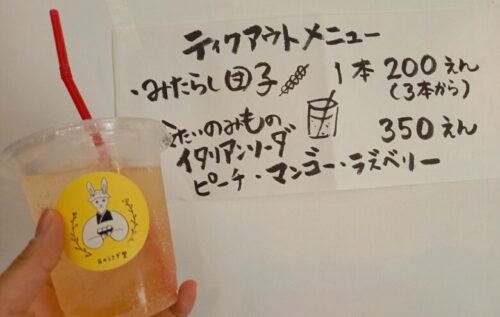 ティクアウトメニュー
・みたらし団子 1本 200えん
(3本から)
たいのみもの
イタリアンソーダ 350えん
ピーチ・マンゴー・ラズベリー